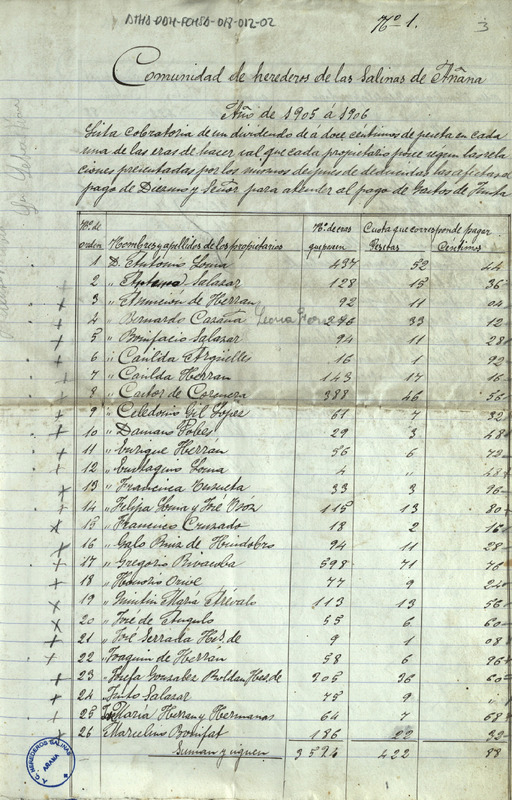 AMHS-DDH-FCHSD-013-012-02
Nº 1.
3
Comunidad de herederos de las Salinas de Añana
Año de 1905 á 1906
Lista cobratoria de un dividendo de a doce centimos de peseta en cada
una de las eras de hacer sal que cada propietario posee según las rela
ciones presentadas por los mismos después de deducidas las afectas al
pago de Diezmo y Señor para atender al pago de Gastos de Junta
Nº de orden Nombres y apellidos de los propietarios Nº de eras que posen Cuota que corresponde pagar Pesetas Centimos
1 D. Antonio Loma 437 52 44
2 " Salazar 128 15 36
3 " Asuncion de Herran 92 11 04
4 " Bernardo Cazaña 276 33 12
5 " Bonifacio Salazar 94 11 28
6 " Canilda Argüelles 16 1 92
7 " Canilda Herran 143 17 16
8 " Castor de Coronera 388 46 56
9 " Celedonio Gil Lopez 61 7 32
10 " Damaso Pobes 29 3 48
11 " Enrique Herrán 56 6 72
12 " Eustaquio Loma 4 " 48
13 " Francisca 33 3 96
14 " Felipa Loma y José 115 13 80
15 " Francisco Cruzado 18 2 16
16 " Galo Ruiz de Huidobro 94 11 28
17 " Gregorio Rivacoba 598 71 76
18 " Honorio Orive 77 9 24
19 " Quintin María Arevalo 113 13 56
20 " José de Angulo 55 6 60
21 " José Serrada Hes. de 9 1 08
22 " Joaquin de Herrán 58 6 96
23 " Josefa Gonzalez Roldan Hes. de 305 36 60
24 " Justo Salazar 75 9 "
25 " María Herran y Hermanas 64 7 68
26 " Marcelino Bonifat 186 22 32
Suman y siguen 3524 422 88
T.C. HEREDEROS SALINAS
AÑANA